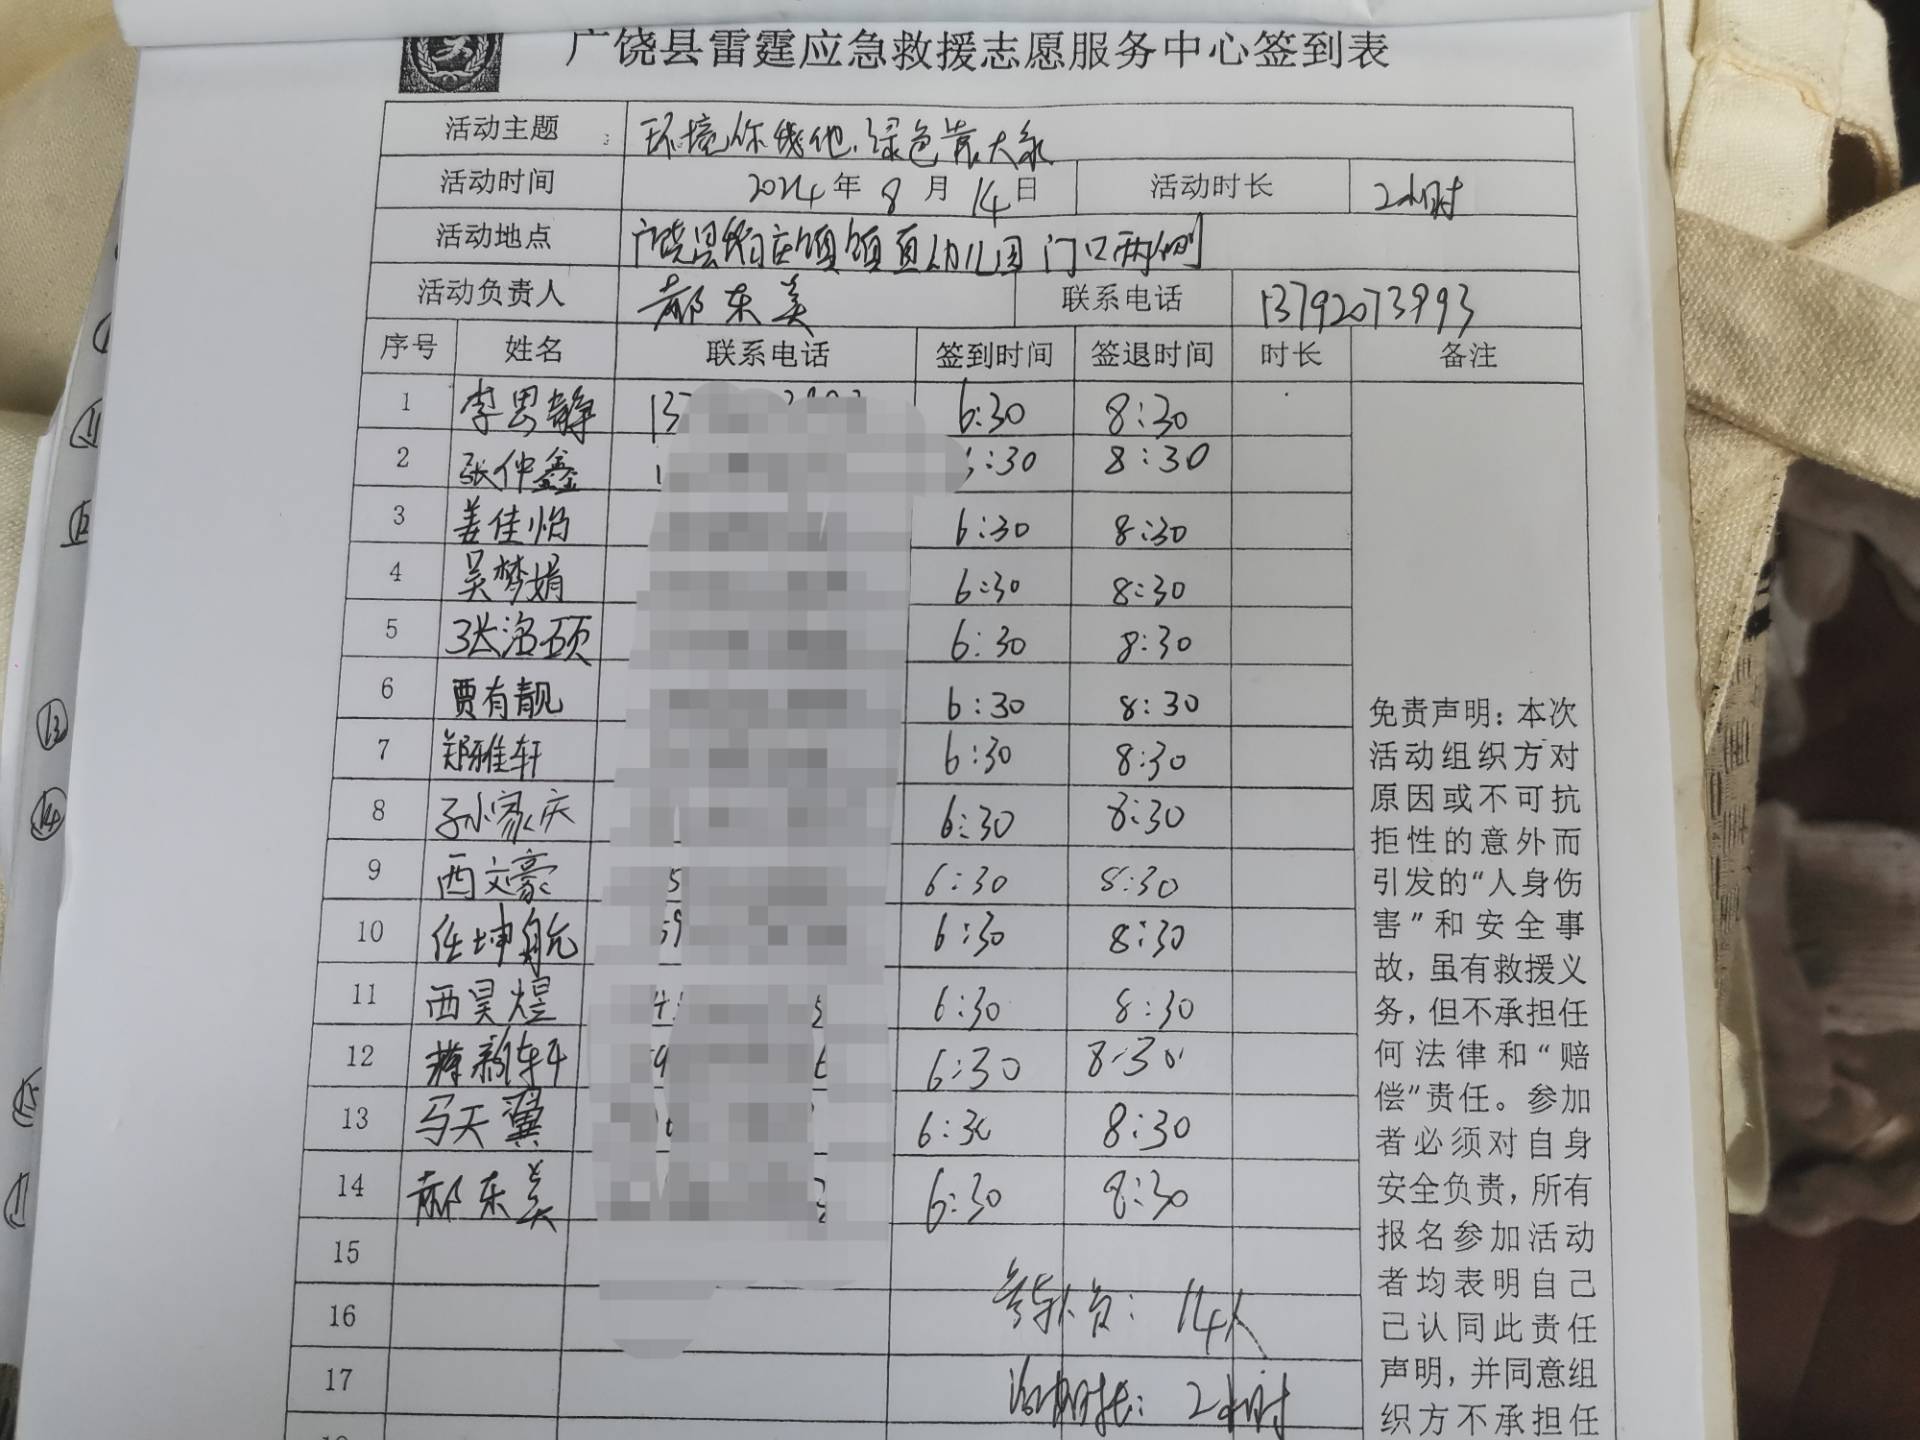 广饶县雷霆应急救援志愿服务中心签到表
活动主题 环境你我他,绿色靠大家
活动时间 2024年8月14日 活动时长 2小时
活动地点 广饶县稻庄镇镇直幼儿园门口两侧
活动负责人 郝东美 联系电话 13792073993
序号 姓名 联系电话 签到时间 签退时间 时长 备注
1 李思静 137 6:30 8:30
2 张仲鑫 1 :30 8:30
3 姜佳怡 6:30 8:30
4 吴梦娟 6:30 8:30
5 张洺硕 6:30 8:30
6 贾有靓 6:30 8:30
7 郑雅轩 6:30 8:30
8 孙家庆 6:30 8:30
9 西文豪 5 6:30 8:30
10 任坤航 59 6:30 8:30
11 西昊煜 6:30 8:30
12 轩 6:30 8:30
13 马天翼 6:30 8:30
14 郝东美 6:30 8:30
15
16 参与人员:14人
17 活动时长:2小时
免责声明:本次
活动组织方对
原因或不可抗
拒性的意外而
引发的“人身伤
害”和安全事
故,虽有救援义
务,但不承担任
何法律和“赔
偿”责任。参加
者必须对自身
安全负责,所有
报名参加活动
者均表明自己
已认同此责任
声明,并同意组
织方不承担任